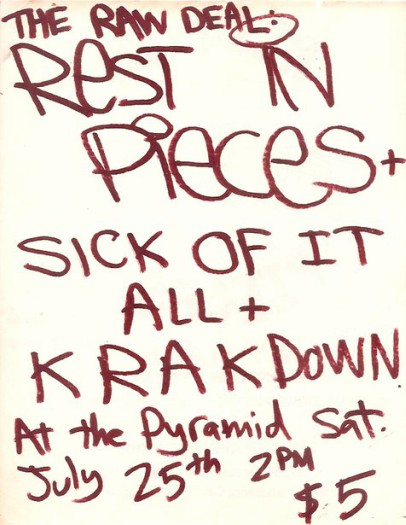 THE RAW DEAL:
REST IN
PIECES +
SICK OF IT
ALL +
KRAKDOWN
At the Pyramid Sat.
July 25th 2PM
$5